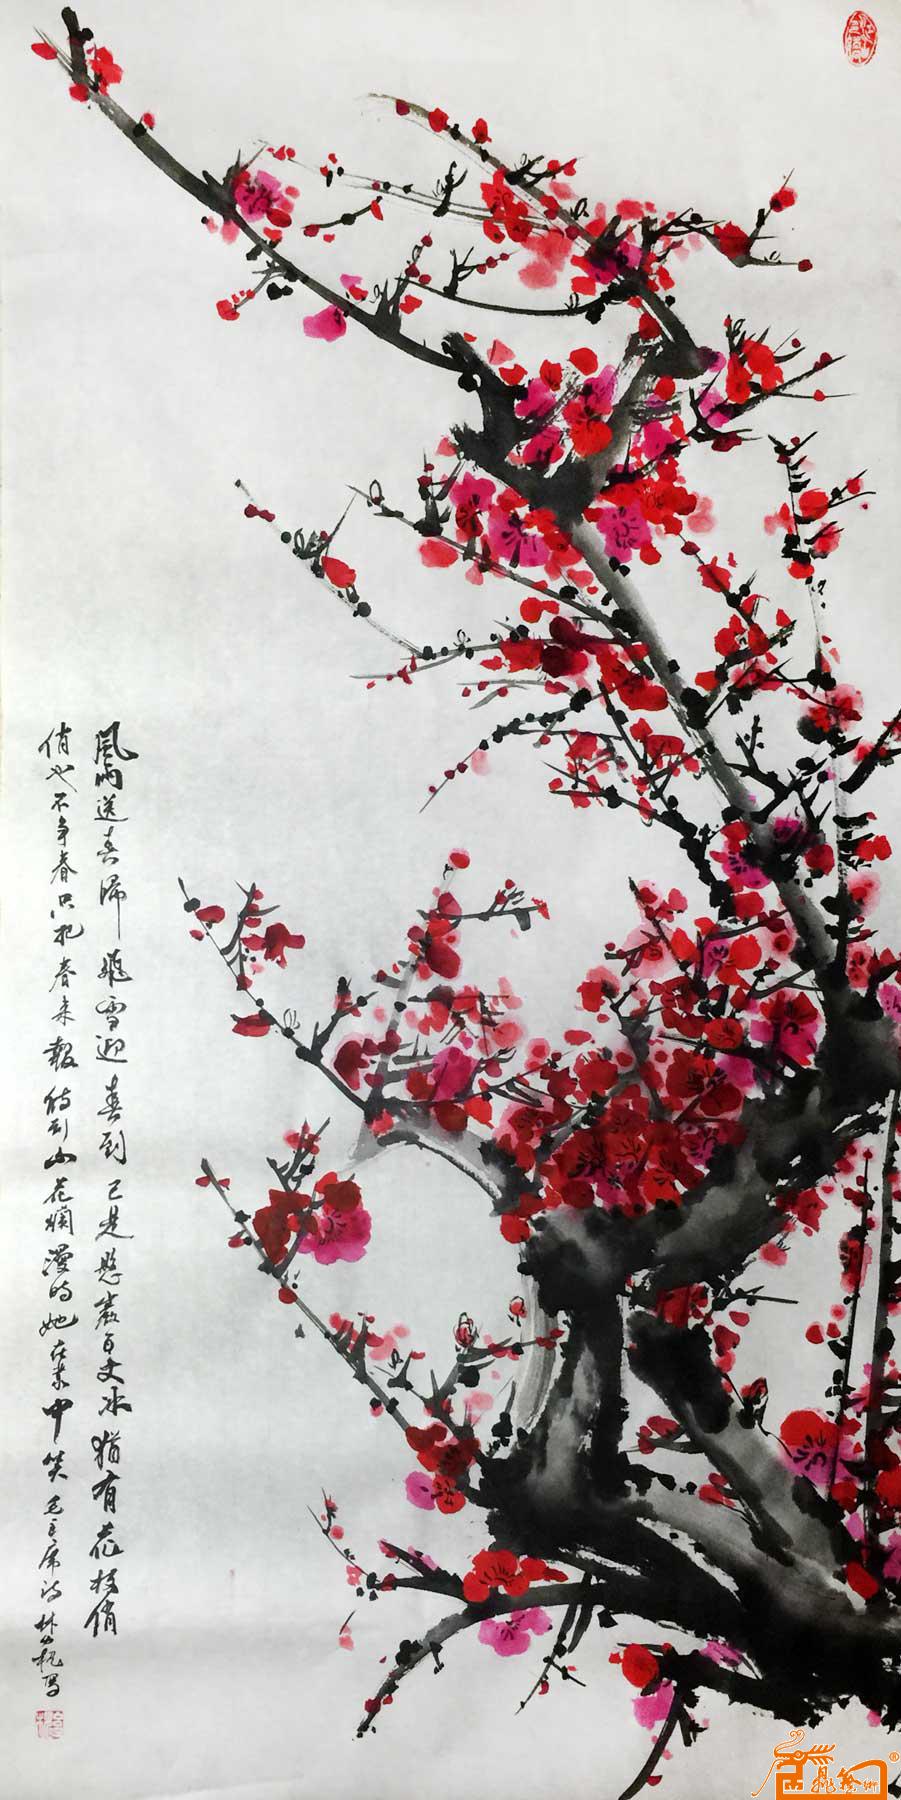 風雨送春歸飛雪迎春到已是懸崖百丈冰猶有花枝俏
俏也不争春只把春来報待到山花爛漫时她在叢中笑毛主席诗 林